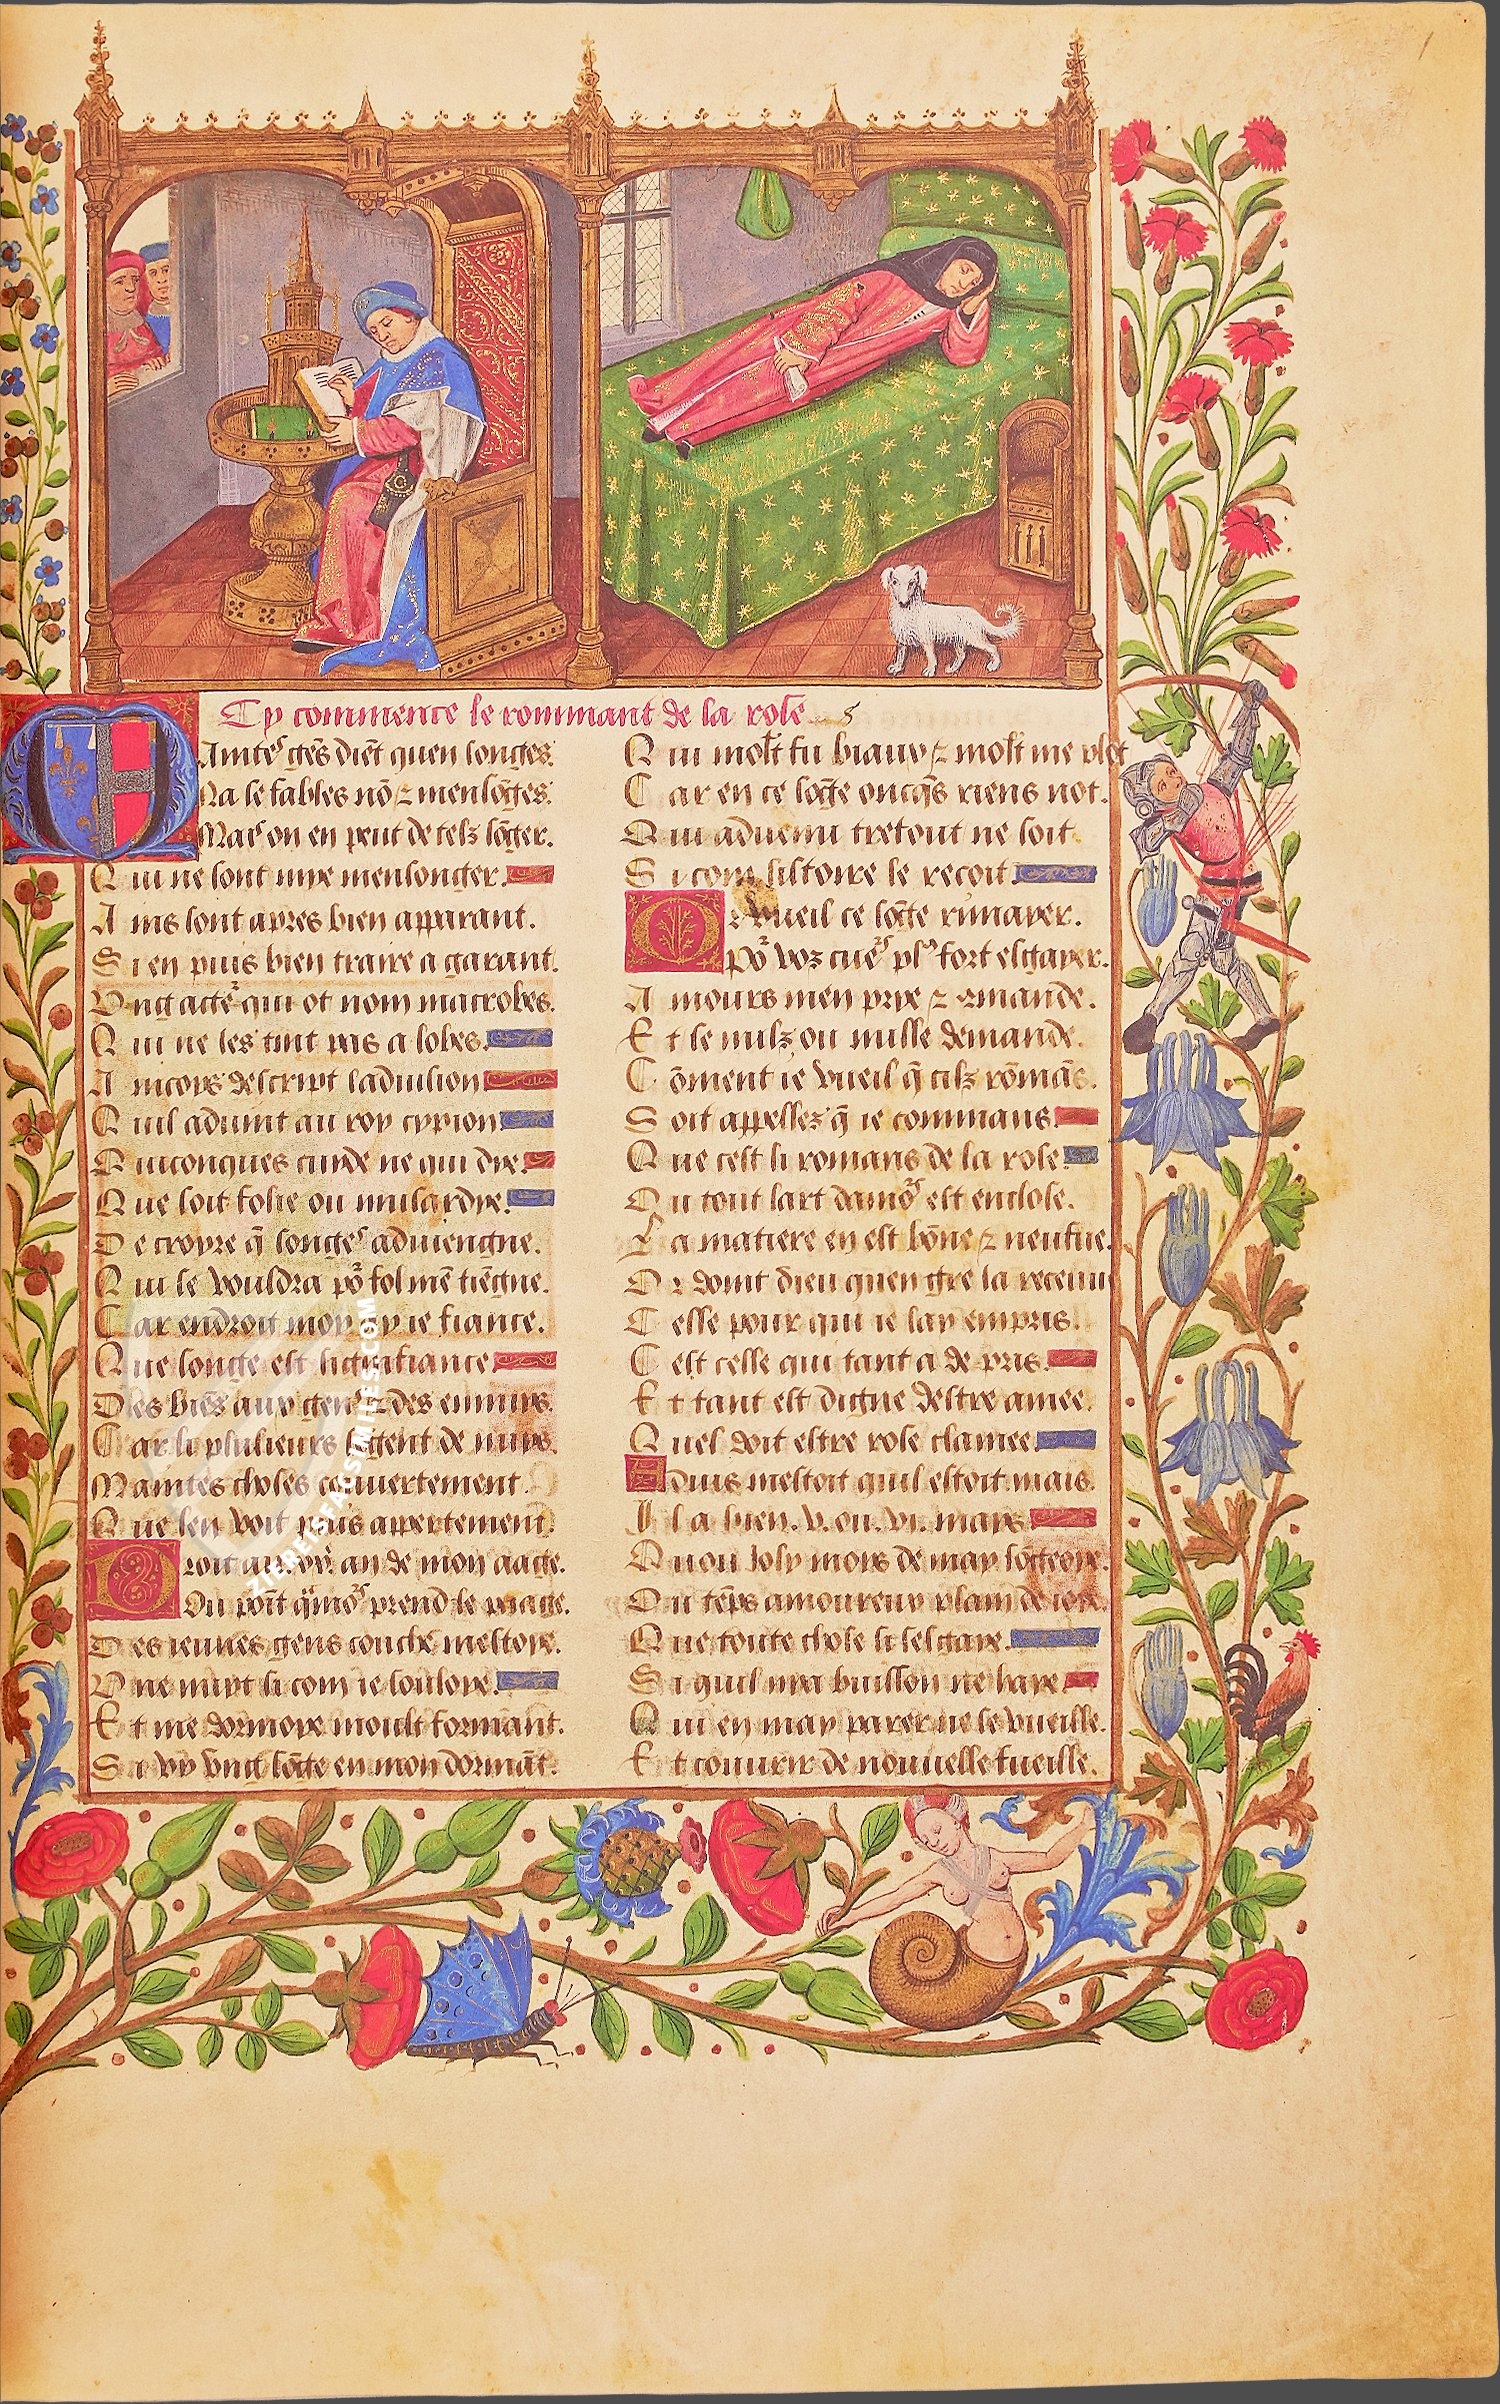 Cy commence le rommant de la rose
Maintes gẽs diẽt quen songes
Na se fables nõ ⁊ mensõges
Mais on en peut de telz sõger
Qui ne sont mye mensonger
Ains sont apres bien apparant
Si en puis bien traire a garant
Ung acteur qui ot nom macrobes
Qui ne les tint pas a lobes
Aincoys descript laduision
Quil aduint au roy cypion
Quiconques cuide ne qui dye
Que soit folie ou musardye
De croyre q̃ songes aduiengne
Qui le vouldra põ fol mẽ tiẽgne
Car endroit moy ay ie fiance
Que songe est signifiance
Des biẽs aux gens ⁊ des ennuys
Car li plusieurs sõgent de nuys
Maintes choses couuertement
Que len voit puis appertement
Droit au xxe an de mon aage
Ou poĩt q̃ amors prend le paage
Des ieunes gens couche mestoye
Une nuyt si com ie souloye
Et me dormoye moult formant
Si vy ung sõge en mon dormãt
Qui molt fu biaux ⁊ molt me plot
Car en ce sõge oncq̃s riens not
Qui aduenu tretout ne soit
Si com listoire le recoit
Or vueil ce sõge rimayer
Põ voz cuers plus fort esgayer
Amours men prye ⁊ cõmande
Et se nulz ou nulle demande
Cõment ie vueil q̃ cilz rõmãs
Soit appellez q̃ ie commans
Que cest li romans de la rose
Ou tout lart damors est enclose
La matiere en est bõne ⁊ neufue
Or doint dieu quen gre la receuue
Celle pour qui ie lay empris
Cest celle qui tant a de pris
Et tant est digne destre amee
Quel doit estre rose clamee
Aduis mestoit quil estoit mais
Il a bien .v. ou .vi. mays
Quou ioly moys de may sõgeoye
Ou tẽps amoureux plain de ioye
Que toute chose si sesgaye
Si quil nya buisson ne haye
Qui en may parer ne se vueille
Et couurir de nouuelle fueille
ZIEREIFACSIMILES.COM